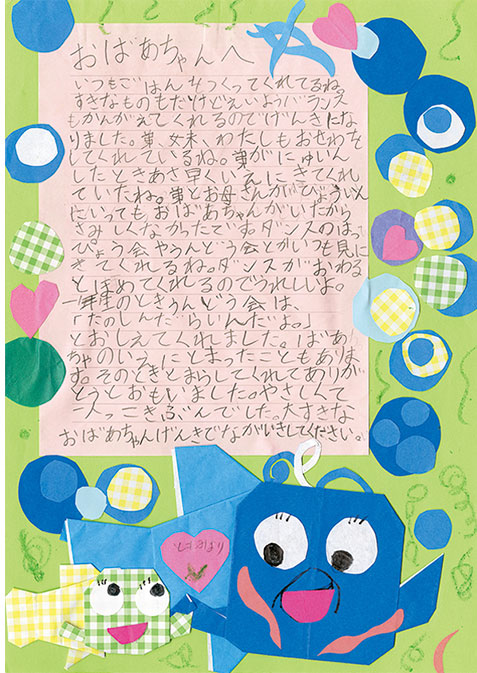 おばあちゃんへ
いつもごはんをつくってくれてるね。
すきなものもだけどえいようバランス
もかんがえてくれるのでげんきにな
りました。弟、妹、わたしもおせわを
してくれているね。弟がにゅいん
したときあさ早くいえにきてくれ
ていたね。弟とお母さんがびょういん
にいってもおばあちゃんがいたから
さみしくなかったですダンスのはっ
ぴょう会やうんどう会とかいつも見に
きてくれるね。ダンスがおわる
とほめてくれるのでうれしいよ。
一年生のときうんどう会は、
「たのしんだらいんだよ。」
とおしえてくれました。ばあ
ちゃのいえにとまったこともありま
す。そのときとまらしてくれてありが
とうとおもいました。やさしくて
にっこきぶんでした。大すきな
おばあちゃんげんきでながいきしてください。